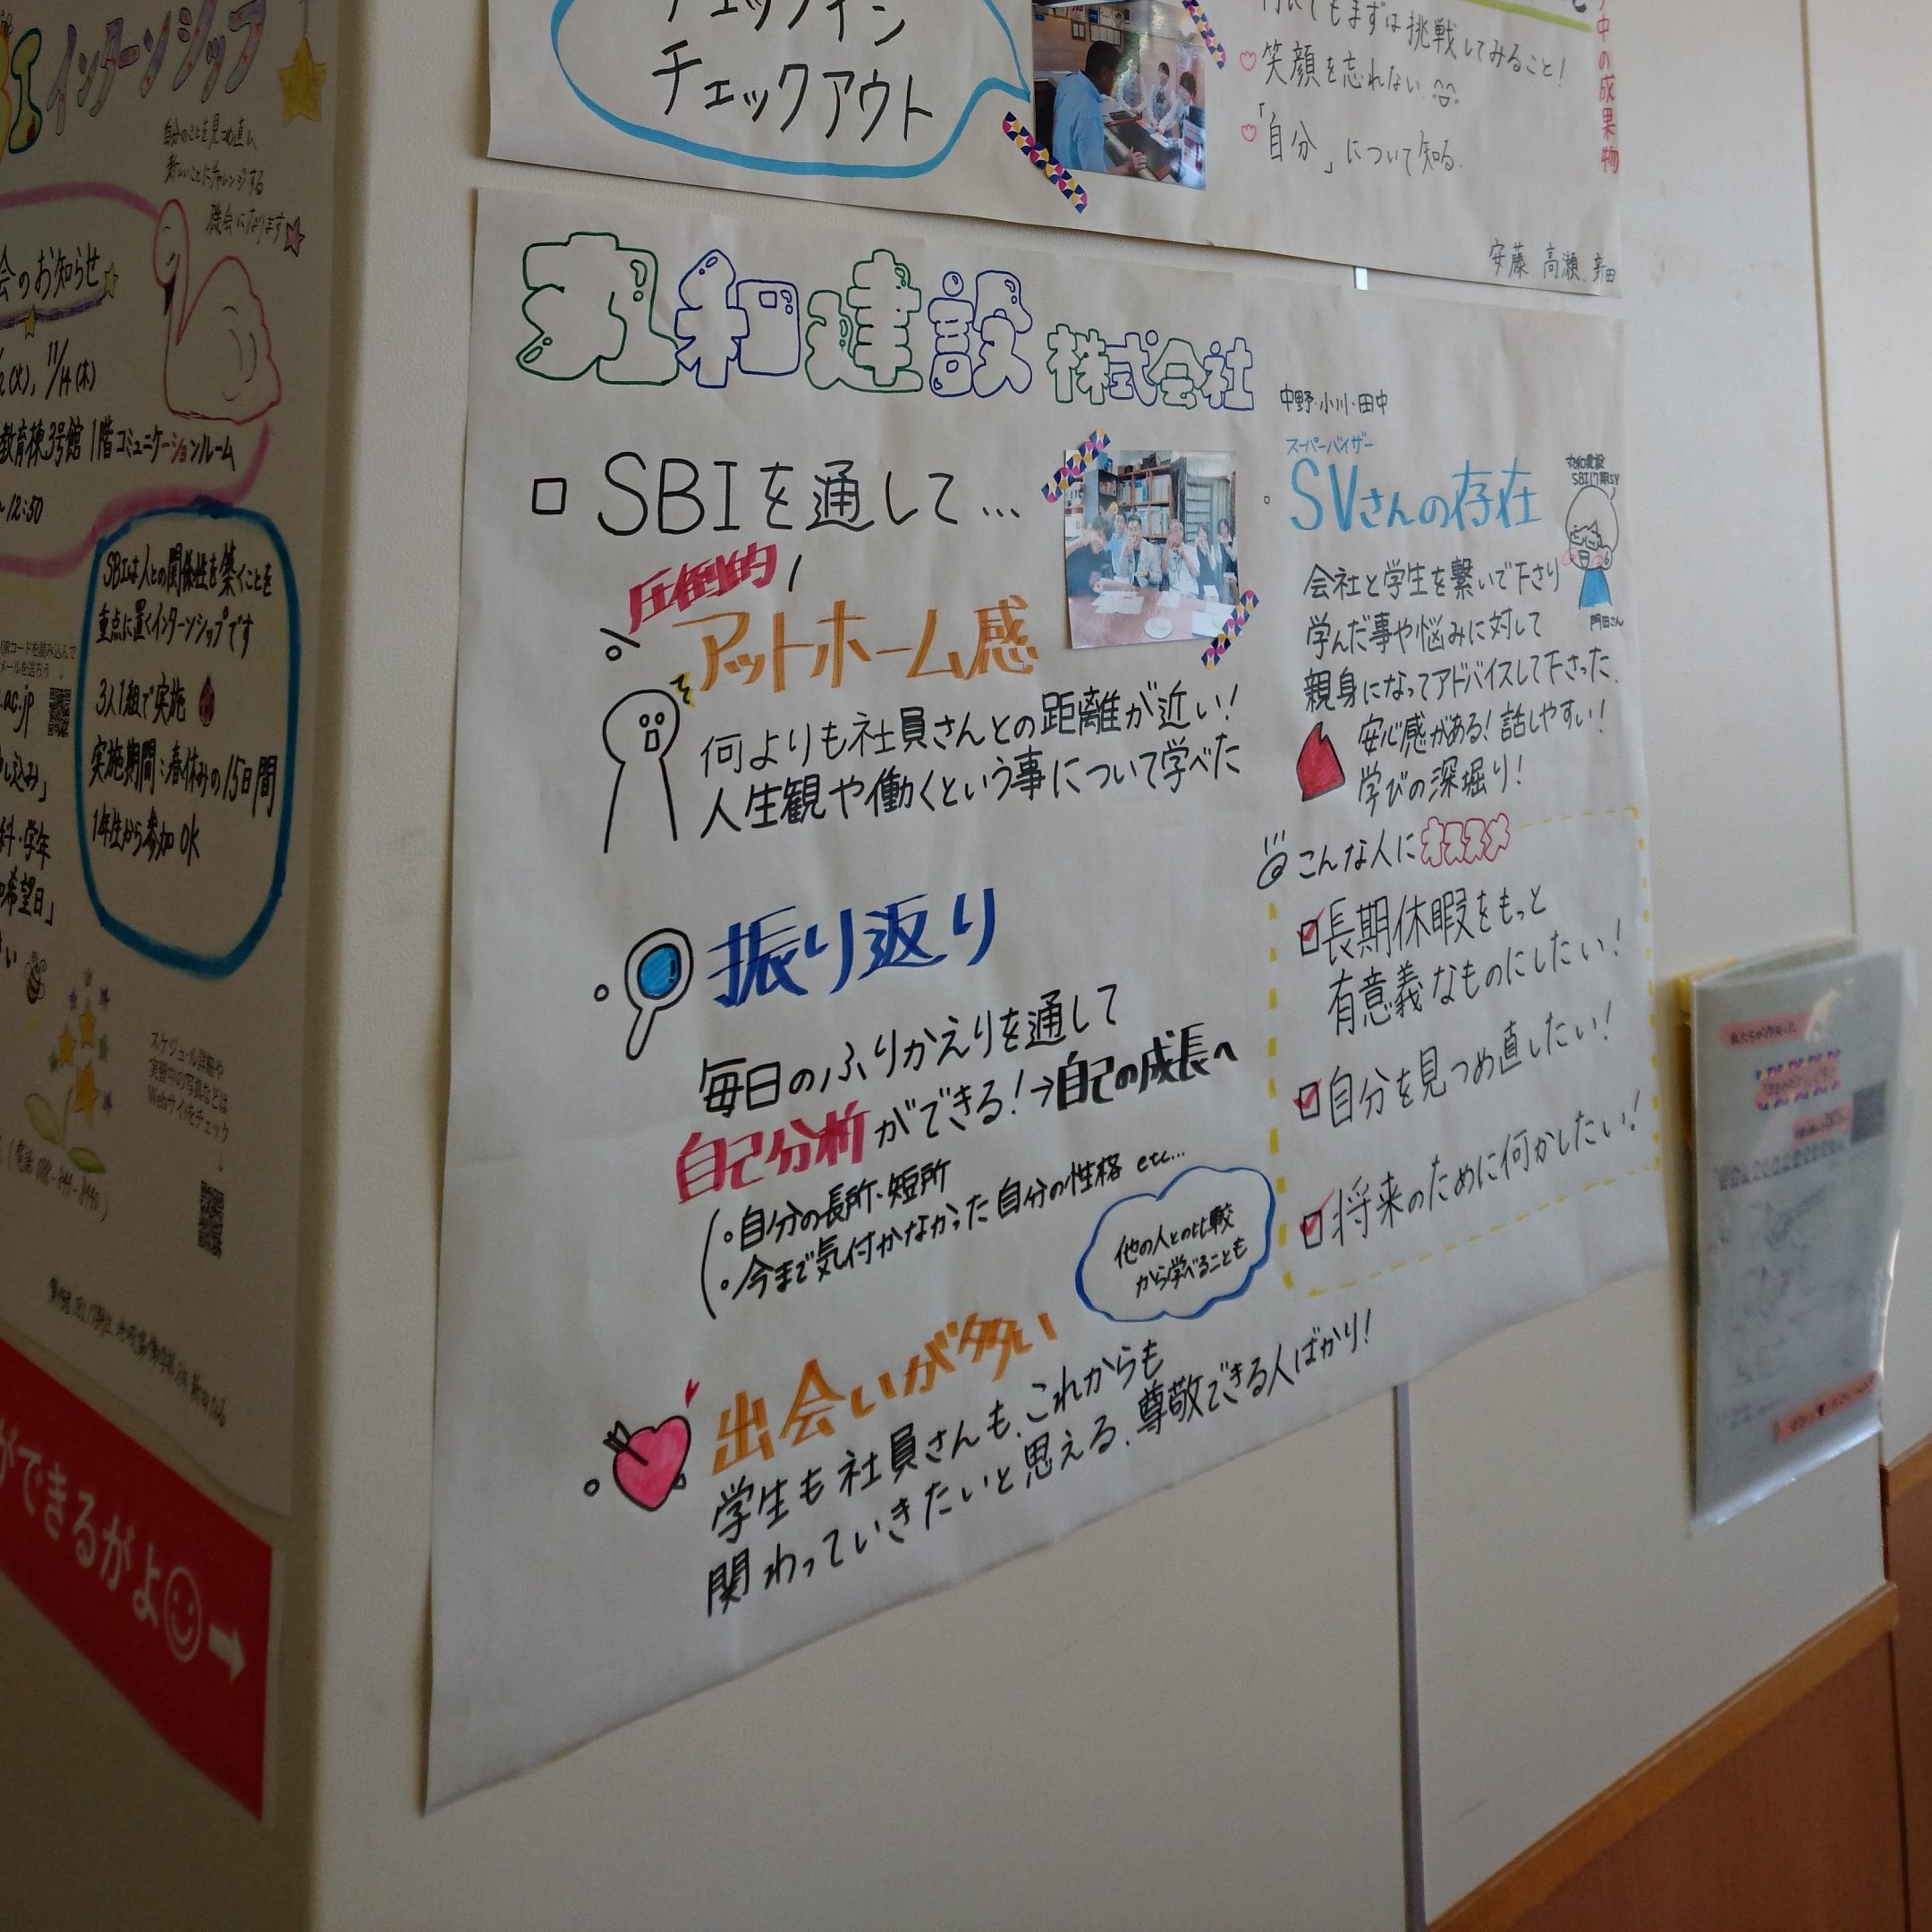 インターンシップ
自分のことを見つめ直し、
新しいことにチャレンジする
機会になります
会のお知らせ
(火), 11/14(木)
教育棟3号館 1階コミュニケーションルーム
~12:50
SBIは人との関係性を築くことを
重点に置くインターンシップです
3人1組で実施
実施期間:春休みの15日間
1年生から参加OK
QRコードを読み込んで
メールを送ろう
.ac.jp
し込み」
科・学年
希望日」
スケジュール詳細や
実習中の写真などは
Webサイトをチェック
↓
ができるがよ →
チェックイン
チェックアウト
何にでもまずは挑戦してみること!
笑顔を忘れない
「自分」について知る.
中の成果物
安藤 高瀬 新田
丸和建設 株式会社
中野・小川・田中
□ SBIを通して...
圧倒的
アットホーム感
何よりも社員さんとの距離が近い!
人生観や働くという事について学べた
振り返り
毎日のふりかえりを通して
自己分析ができる!→自己の成長へ
・自分の長所・短所
・今まで気付かなかった自分の性格 etc...
他の人との比較
から学べることも
出会いが多い
学生も社員さんも、これからも
関わっていきたいと思える、尊敬できる人ばかり!
スーパーバイザー
SVさんの存在
丸和建設
SBI17期SV
門田さん
会社と学生を繋いで下さり
学んだ事や悩みに対して
親身になってアドバイスして下さった
安心感がある!話しやすい!
学びの深堀り!
こんな人にオススメ
長期休暇をもっと
有意義なものにしたい!
自分を見つめ直したい!
将来のために何かしたい!